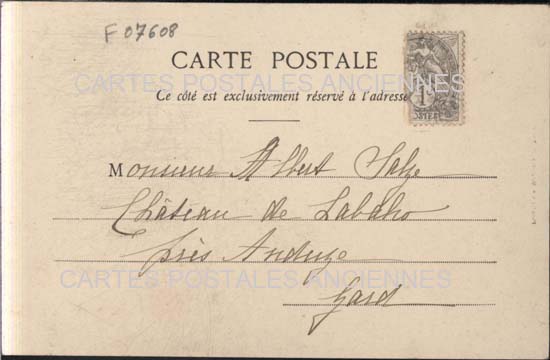 F 07608
CARTE POSTALE
CARTES POSTALES ANCIENNES
Ce côté est exclusivement réservé à l'adresse
Monsieur Albert Salze
Château de Labaho
près Anduze
CARTES POSTALES ANCIENNES
Gard